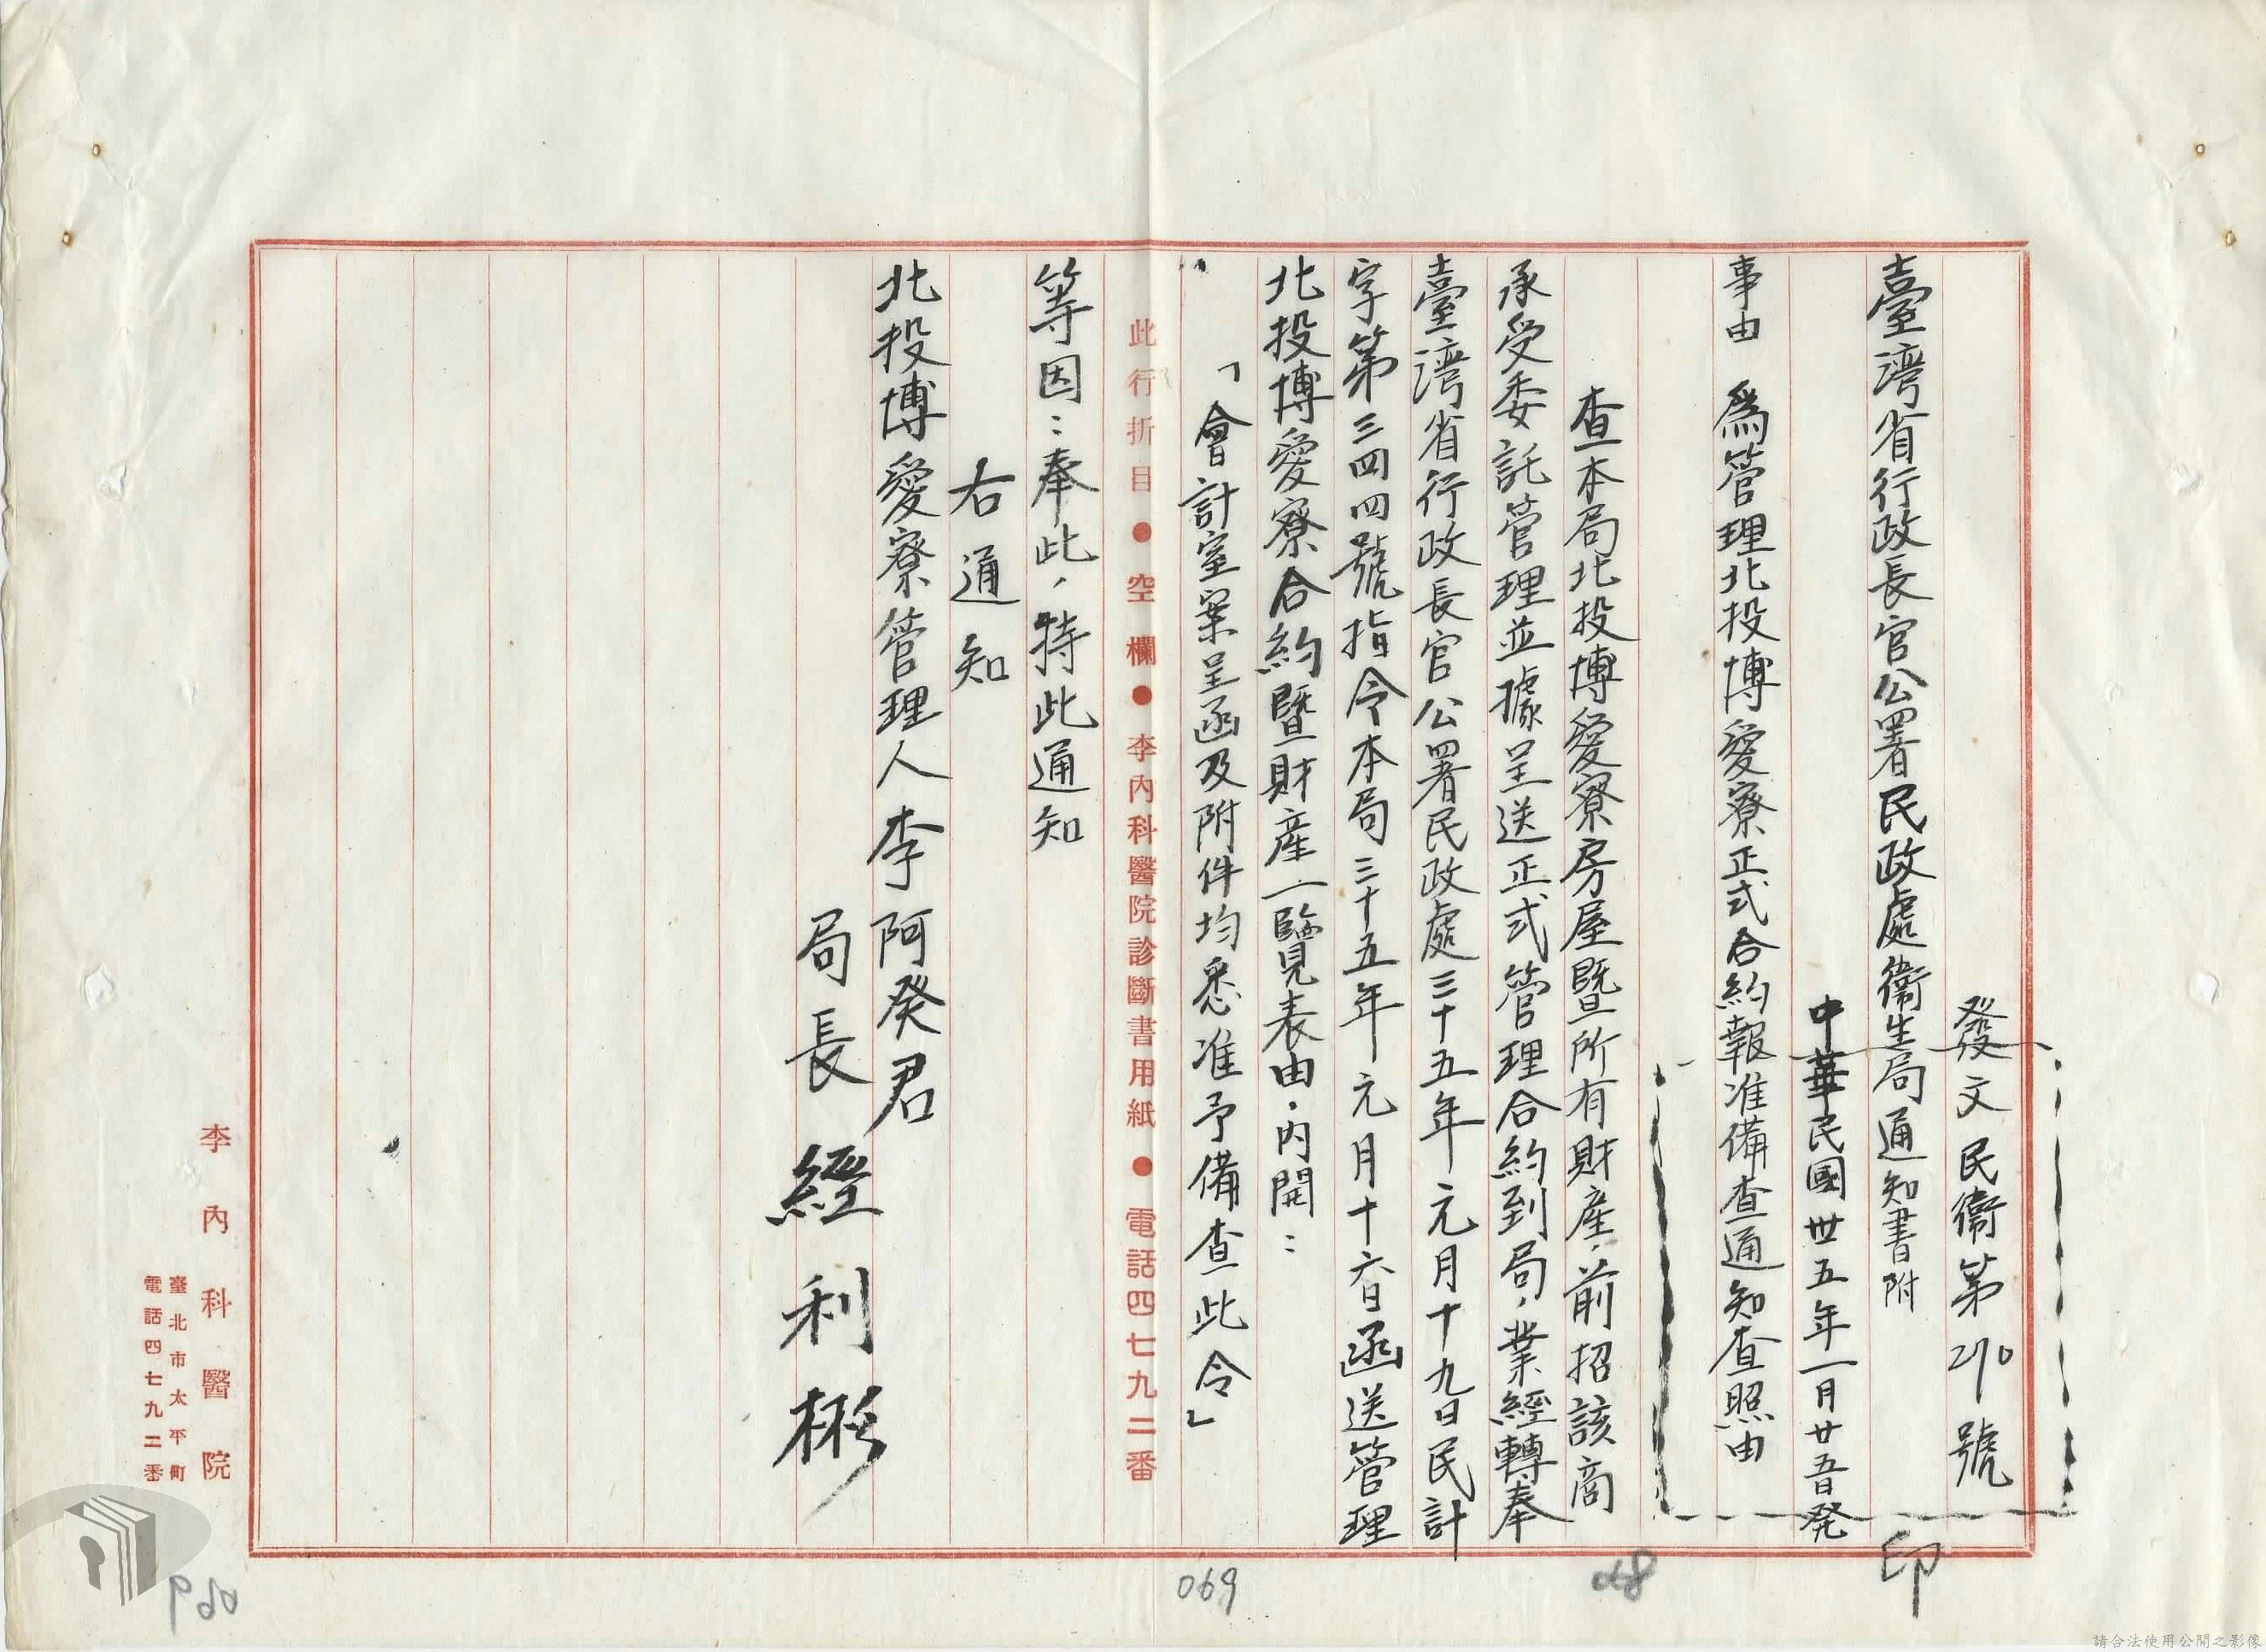 發文民衞第210號
臺灣省行政長官公署民政處衞生局通知書附
中華民國卅五年一月廿五日発
印
事由　為管理北投博愛寮正式合約報准備查通知查照由
查本局北投博愛寮房屋暨所有財產，前招該商
承受委託管理並據呈送正式管理合約到局，業經轉奉
臺灣省行政長官公署民政處三十五年元月十九日民計
字第三四四號指令本局三十五年元月十六日函送管理
北投博愛寮合約暨財產一覽表由，內開：
「會計室案呈函及附件均悉准予備查此令」
此行折目●空欄●李內科醫院診斷書用紙●電話四七九二番
等因：奉此，特此通知
右通知
北投博愛寮管理人李阿癸君
局長 經利彬
李內科醫院
臺北市太平町
電話四七九二番
069
請合法使用公開之影像